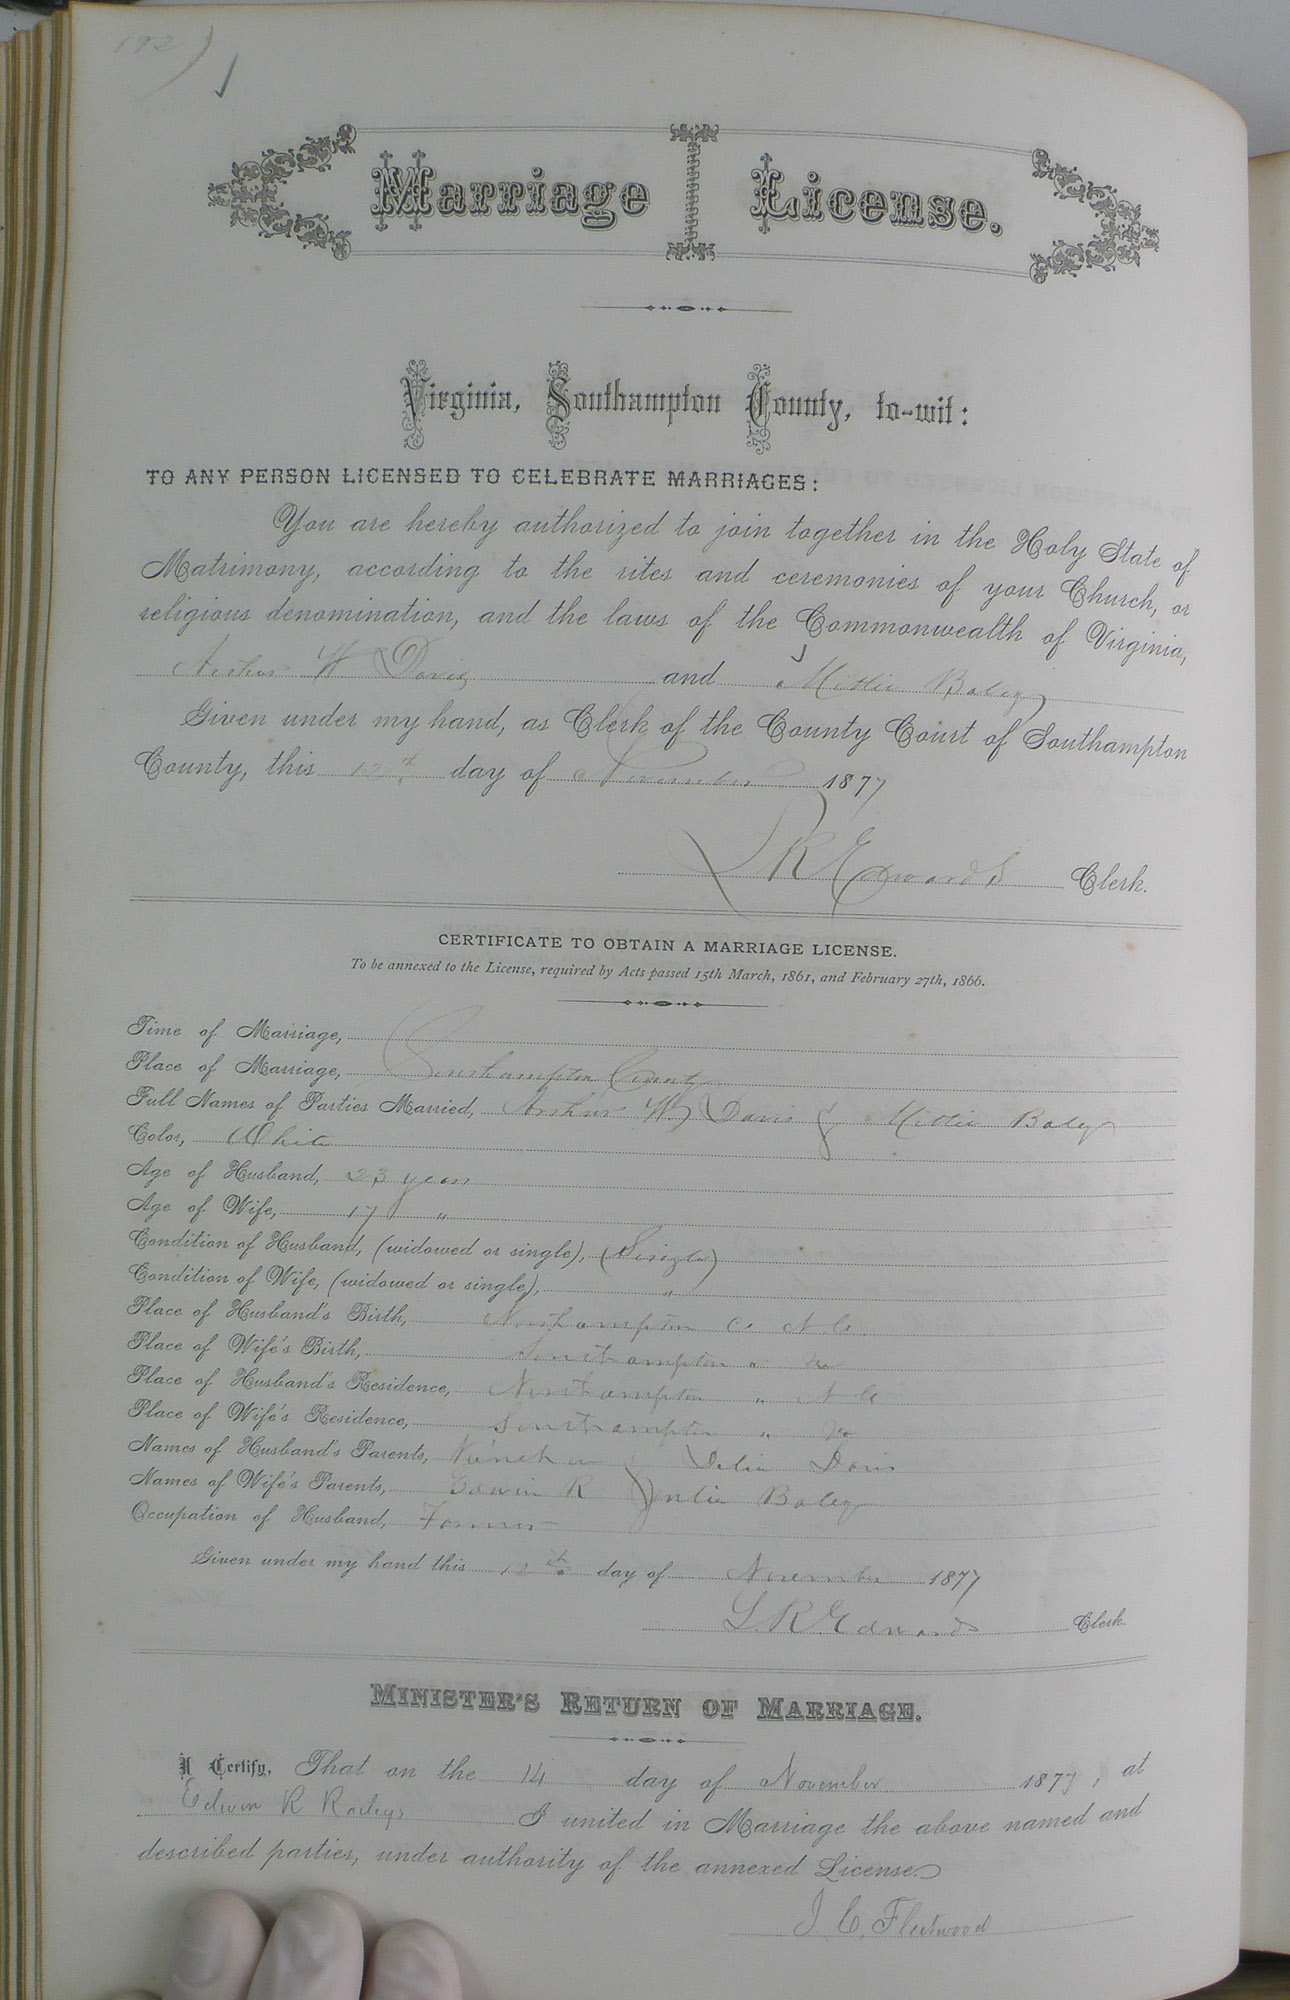 192
Marriage License.
Virginia, Southampton County, to-wit:
TO ANY PERSON LICENSED TO CELEBRATE MARRIAGES:
You are hereby authorized to join together in the Holy State of
Matrimony, according to the rites and ceremonies of your Church, or
religious denomination, and the laws of the Commonwealth of Virginia,
Arthur W Davis and Mittie Baley
Given under my hand, as Clerk of the County Court of Southampton
County, this 12th day of November 1877
L R Edwards Clerk.
CERTIFICATE TO OBTAIN A MARRIAGE LICENSE.
To be annexed to the License, required by Acts passed 15th March, 1861, and February 27th, 1866.
Time of Marriage,
Place of Marriage, Southampton County
Full Names of Parties Married, Arthur W. Davis & Mittie Baley
Color, White
Age of Husband, 23 years
Age of Wife, 17 "
Condition of Husband, (widowed or single), (Single)
Condition of Wife, (widowed or single), "
Place of Husband's Birth, Northampton Co N.C.
Place of Wife's Birth, Southampton " Va
Place of Husband's Residence, Northampton " N C
Place of Wife's Residence, Southampton " Va
Names of Husband's Parents, & Delia Davis
Names of Wife's Parents, Edwin R & Julia Baley
Occupation of Husband, Farmer
Given under my hand this 12th day of November 1877
L. R. Edwards Clerk.
MINISTER'S RETURN OF MARRIAGE.
I Certify, That on the 14 day of November 1877, at
Edwin R I united in Marriage the above named and
described parties, under authority of the annexed License.
J. C. Fleetwood